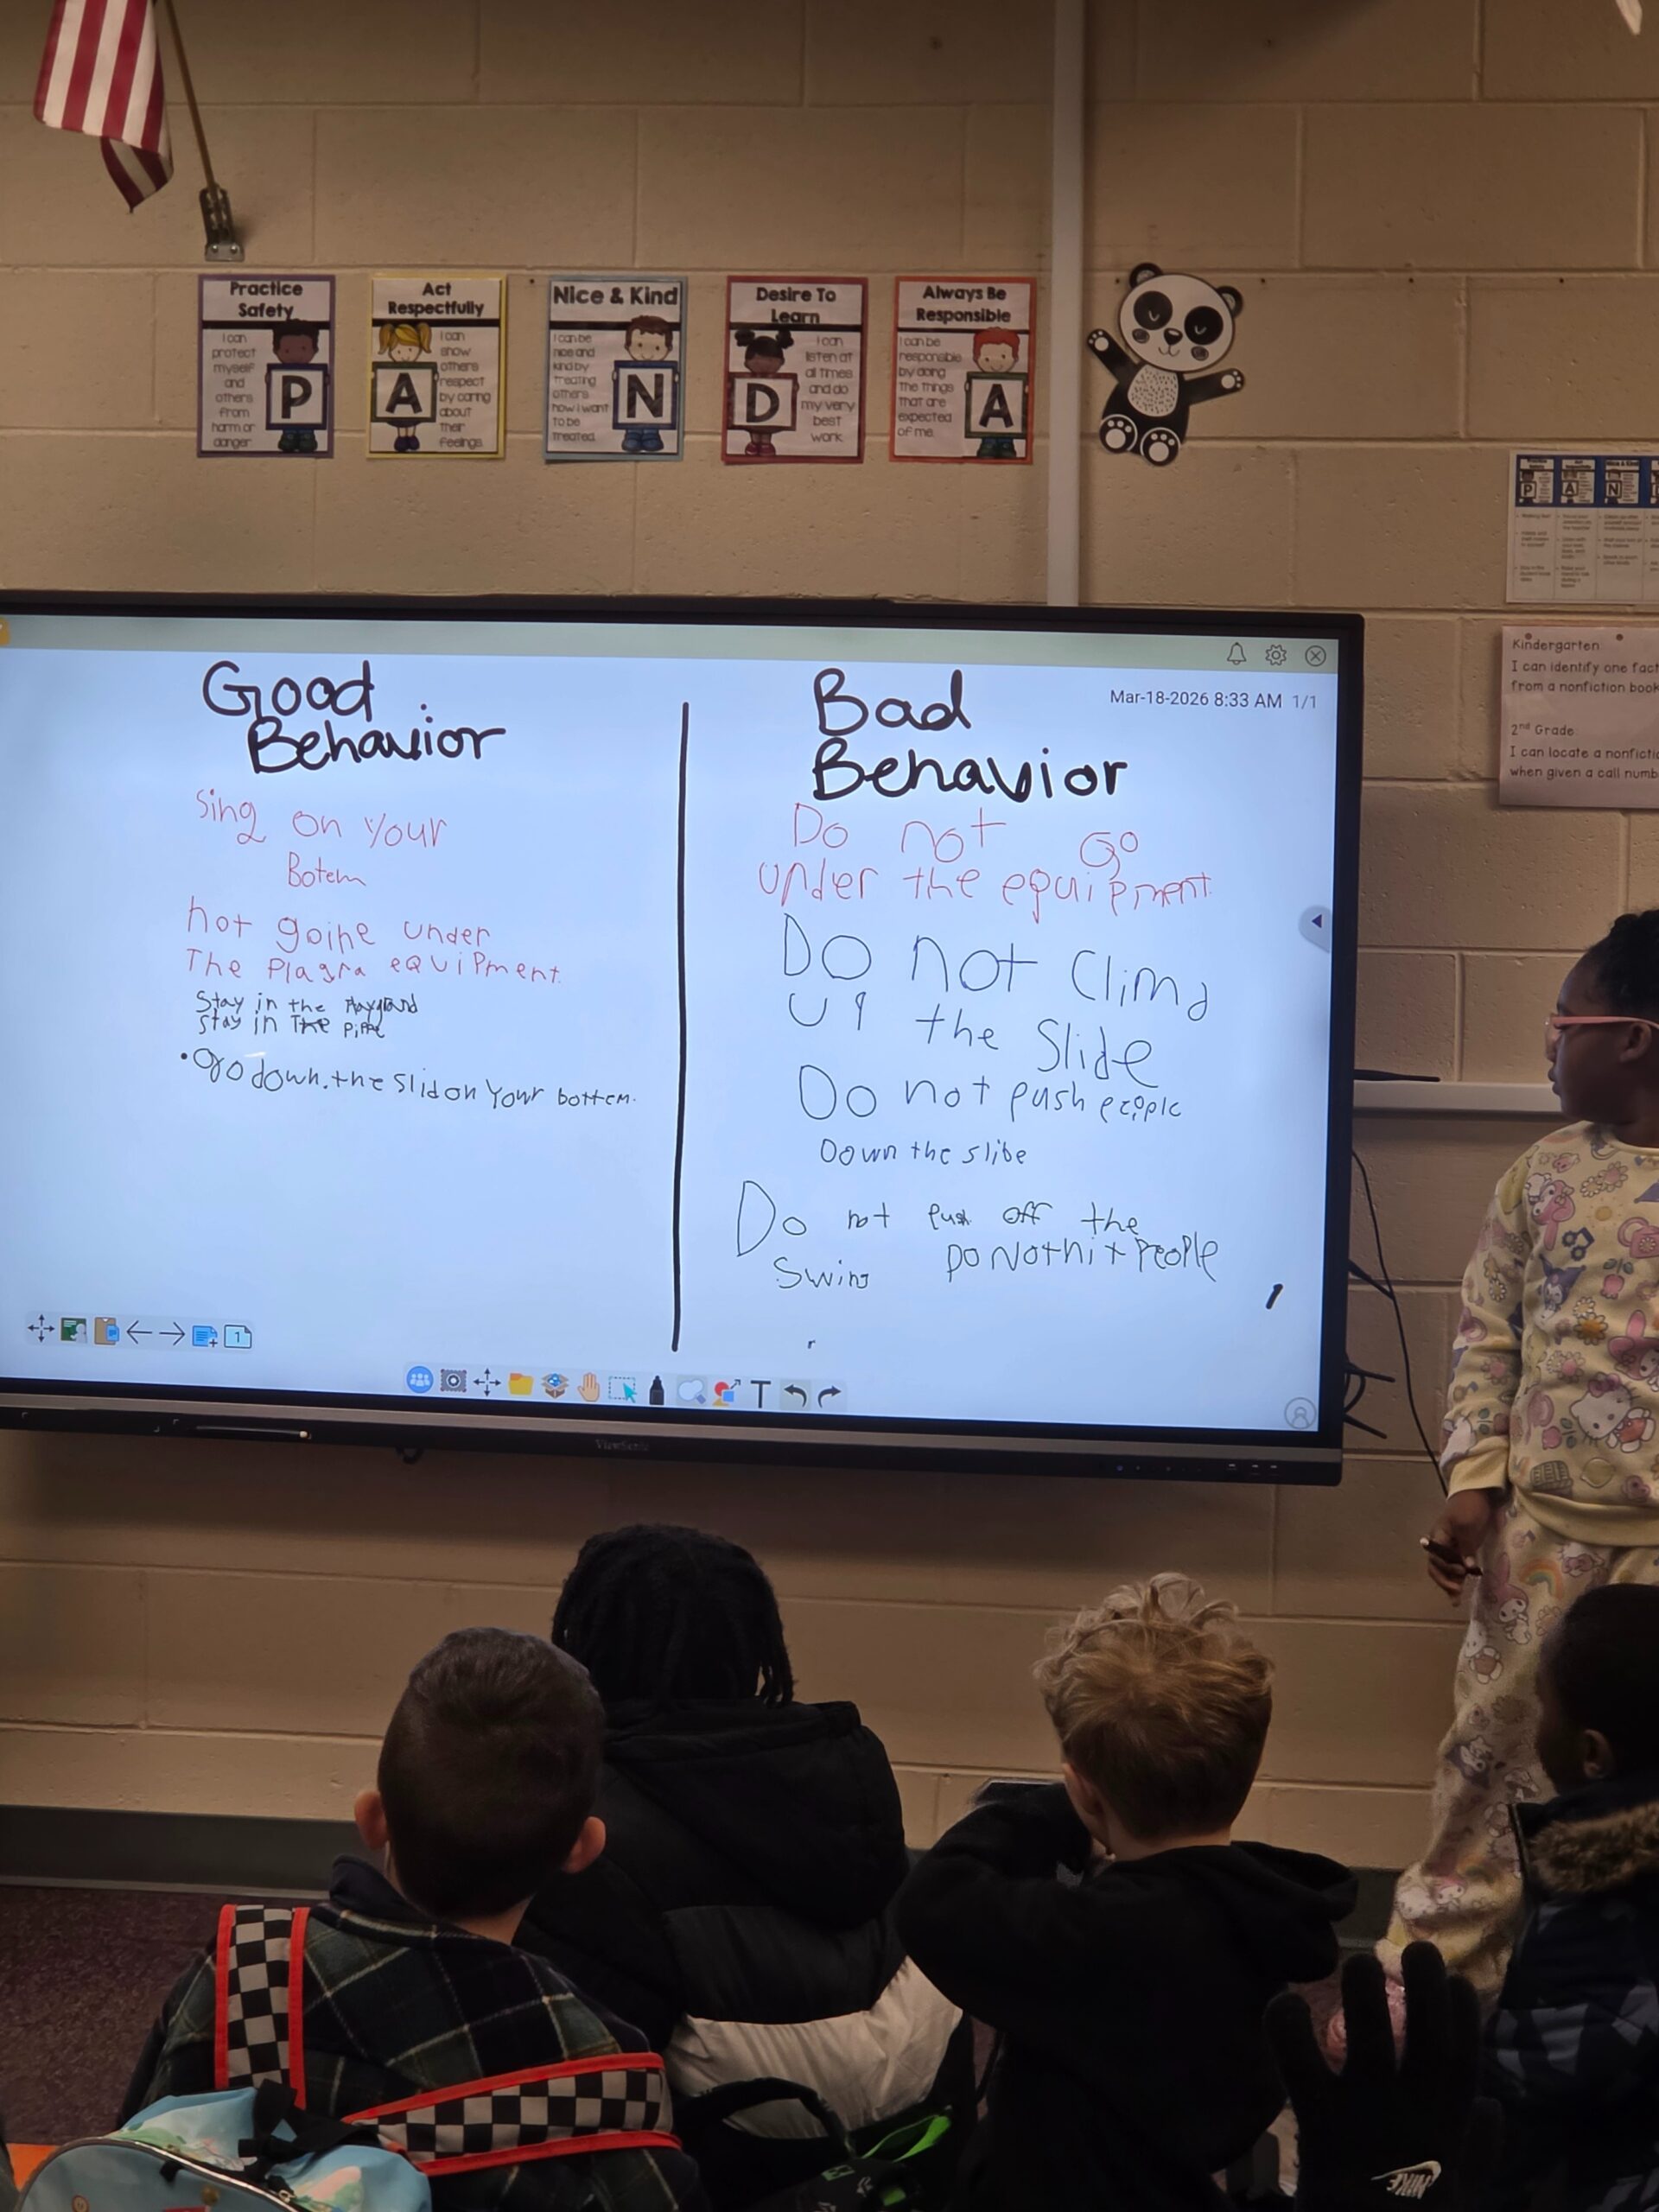 Practice
Safety
I can
protect
myself
and
others
from
harm or
danger
P
Act
Respectfully
I can
show
others
respect
by caring
about
their
feelings.
A
Nice & Kind
I can be
nice and
kind by
treating
others
how I want
to be
treated.
N
Desire To
Learn
I can
listen at
all times
and do
my very
best
work.
D
Always Be
Responsible
I can be
responsible
by doing
the things
that are
expected
of me.
A
P A N
Kindergarten
I can identify one fact
from a nonfiction book
2nd Grade
I can locate a nonfictio
when given a call numb
Mar-18-2026 8:33 AM 1/1
Good
Behavior
Sing on your
Botem
not goine under
The Plagra eQUiPment
Stay in the Playground
Stay in The
• go down. the slid on Your bottem.
Bad
Behavior
Do not Go
under the equipment
Do not Climd
UP the Slide
Do not push people
Down the slibe
Do not Push off the
Swing Do Not hit PeoPle
1
T
ViewSonic
NIKE